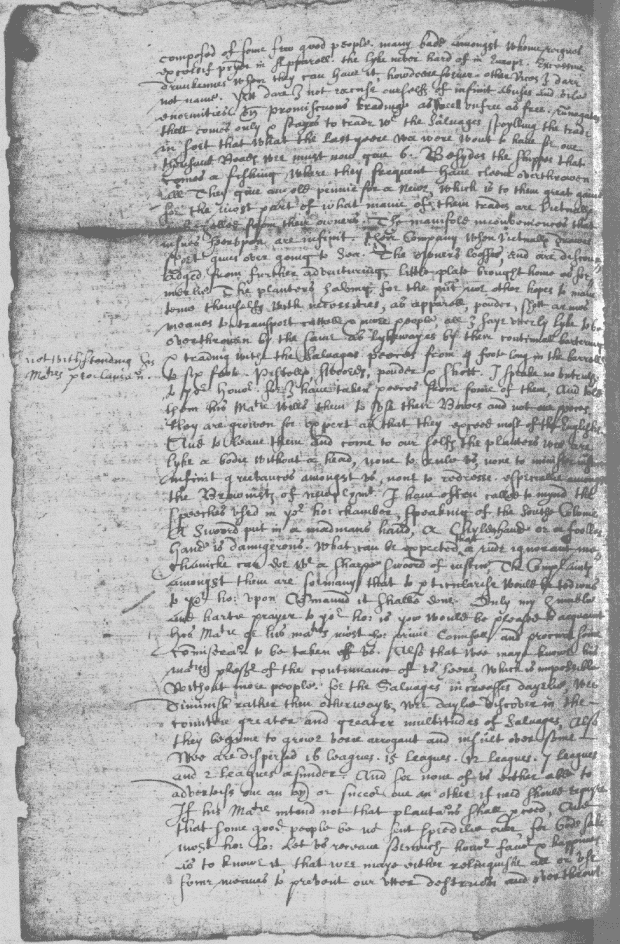 composed of some few good people. many bade amongst whome
excessif pryde in Apparell. the lyke never hard of in Europe. Excessive
drunkennes when they can have it. howsoever other vices I dare
not name. Yet dare I not excuse ourselfs of infinit abuses and vile
enormities by promiscuous tradinge aswell unfree as free.
that comes only to trade wth the Salvages spoylling the trade
in sort that what the last yeere wee were wont to have for one
wee must now give 6. Besydes the shippes that
comes a fishing where they frequent have cleene overthrowen
all They give an old pennie for a newe, which is to them great gaine
for the most part of what manie of them trades are victualls
from their owners. The manifold inconveniences that
are infinit. Their Company when victualls growes
short gives over going to Sea. The owners losses, and are
from further adventuringe. little plate brought home as for
The planters having for the not other hopes to
themselfs with necessities, as apparell, pouder, shott
meanes to transport cattell & more people, all I say uterly lyke to be
overthrowen by the same. as lykewayes by there continuall
& trading with the Salvages peeces from 4 foot long in the barrell
notwithstanding his
Maties proclamation.
to six foot. Pistols, Swords, pouder & shott. I speake no untruth
to yor honor. for I have taken peeces from some of them. And told
them his Matie wills them to use their Bowes and not our peeces.
They are growen soe expert as that they exceed most of the English.
And to leave them and come to our selfs the planters wee are
lyke a bodie without a head, none to rule us none to minister
infinit grevances amongst us, none to redresse especialie amongst
the Brownists of new plimt. I have often called to mynd the
speeches used in yor hor chamber, speaking of the South
A Sword put in a madmans hand, a Chyldes hand or a fooles
hand is daungerous. what can be expected that a rude ignorant
can doe wth a sharpe sword of iustice. The Complaints
amongst them are so many that to particularise would be tedious
to yor hor: upon Commaund it shalbe done. Only my humble
and hartie prayer to yor hor: is you would be pleased to acquaint
his Matie or his maties most hor: privie Counsell, and procure some
to be taken off us. Also that wee maye know his
maties pleasr. of the continuance of us heere, which is impossible
without more people. for the Salvages increases daylie, wee
diminish rather then otherwayes, wee daylie discover in the
countrie greater and greater multitudes of Salvages, Also
they beginne to growe verie arrogant and insult over some
Wee are dispersed 16 leagues. 15 leagues. 12 leagues. 7 leagues
and 2 leagues asunder. And soe none of us either able to
advertise one an other or succor one an other if need should require
If his Matie intend not that plantations shall proceed, And
that some good people be not sent spedilie over, for Gods sake
most hor: Lo: let us receave soe much favor
as to know it that wee maye either relinquish all or use
some meanes to prevent our utter destruction and overthrow